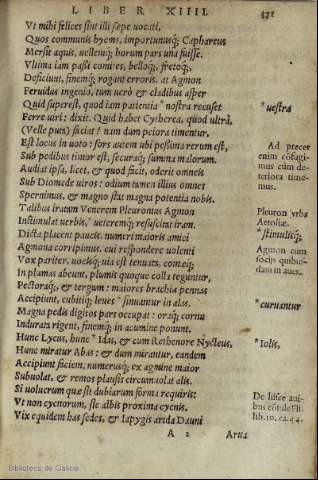 LIBER XIIII. 371
Vt mihi felices sint illi sæpe uocati,
Quos communis hyems, importunusq; Caphareus
Mersit aquis, uellemq; horum pars una fuisse.
Vltima iam passi comites, belloq; fretoq;
Deficiunt, finemq; rogant erroris. at Agmon
Feruidus ingenio, tum uero & cladibus asper
Quid superest, quod iam patientia * nostra recuset
* uestra
Ferre uiri: dixit. Quid habet Cytherea, quod ultra,
(Velle puta) faciat? nam dum peiora timentur,
Est locus in uoto: sors autem ubi pessima rerum est,
Ad preces
enim cõfugi-
mus cùm de-
teriora time-
mus.
Sub pedibus timor est, securaq; summa malorum.
Audiat ipsa, licet, & quod facit, oderit omneis
Sub Diomede uiros: odium tamen illius omnes
Spernimus, & magno stat magna potentia nobis.
Talibus iratam Venerem Pleuronius Agmon
Pleuron vrbs
Aetoliæ.
Instimulat uerbis, * ueteremq; resuscitat iram.
* stimulisq;
Dicta placent paucis. numeri maioris amici
Agmona corripimus. cui respondere uolenti
Agmon cum
socijs quibus-
dam in aues.
Vox pariter, uocisq; uia est tenuata, comæq;
In plumas abeunt, plumis quoque colla teguntur,
Pectoraq;, & tergum: maiores brachia pennas
Accipiunt, cubitiq; leues * sinuantur in alas.
* curuantur
Magna pedis digitos pars occupat: oraq; cornu
Indurata rigent, finemq; in acumine ponunt.
Hunc Lycus, hunc * Idas, & cum Rethenore Nycteus,
* Iolis,
Hunc miratur Abas: & dum mirantur, eandem
Accipiunt faciem. numerusq; ex agmine maior
Subuolat, & remos plausis circumuolat alis.
Si uolucrum quæ sit dubiarum forma requiris:
De huiusce aui-
bus cõsule Pli.
lib. 10. ca. 44.
Vt non cycnorum, sic albis proxima cycnis.
Vix equidem has sedes, & Iapygis arida Dauni
A 2 Arua
Biblioteca de Galicia